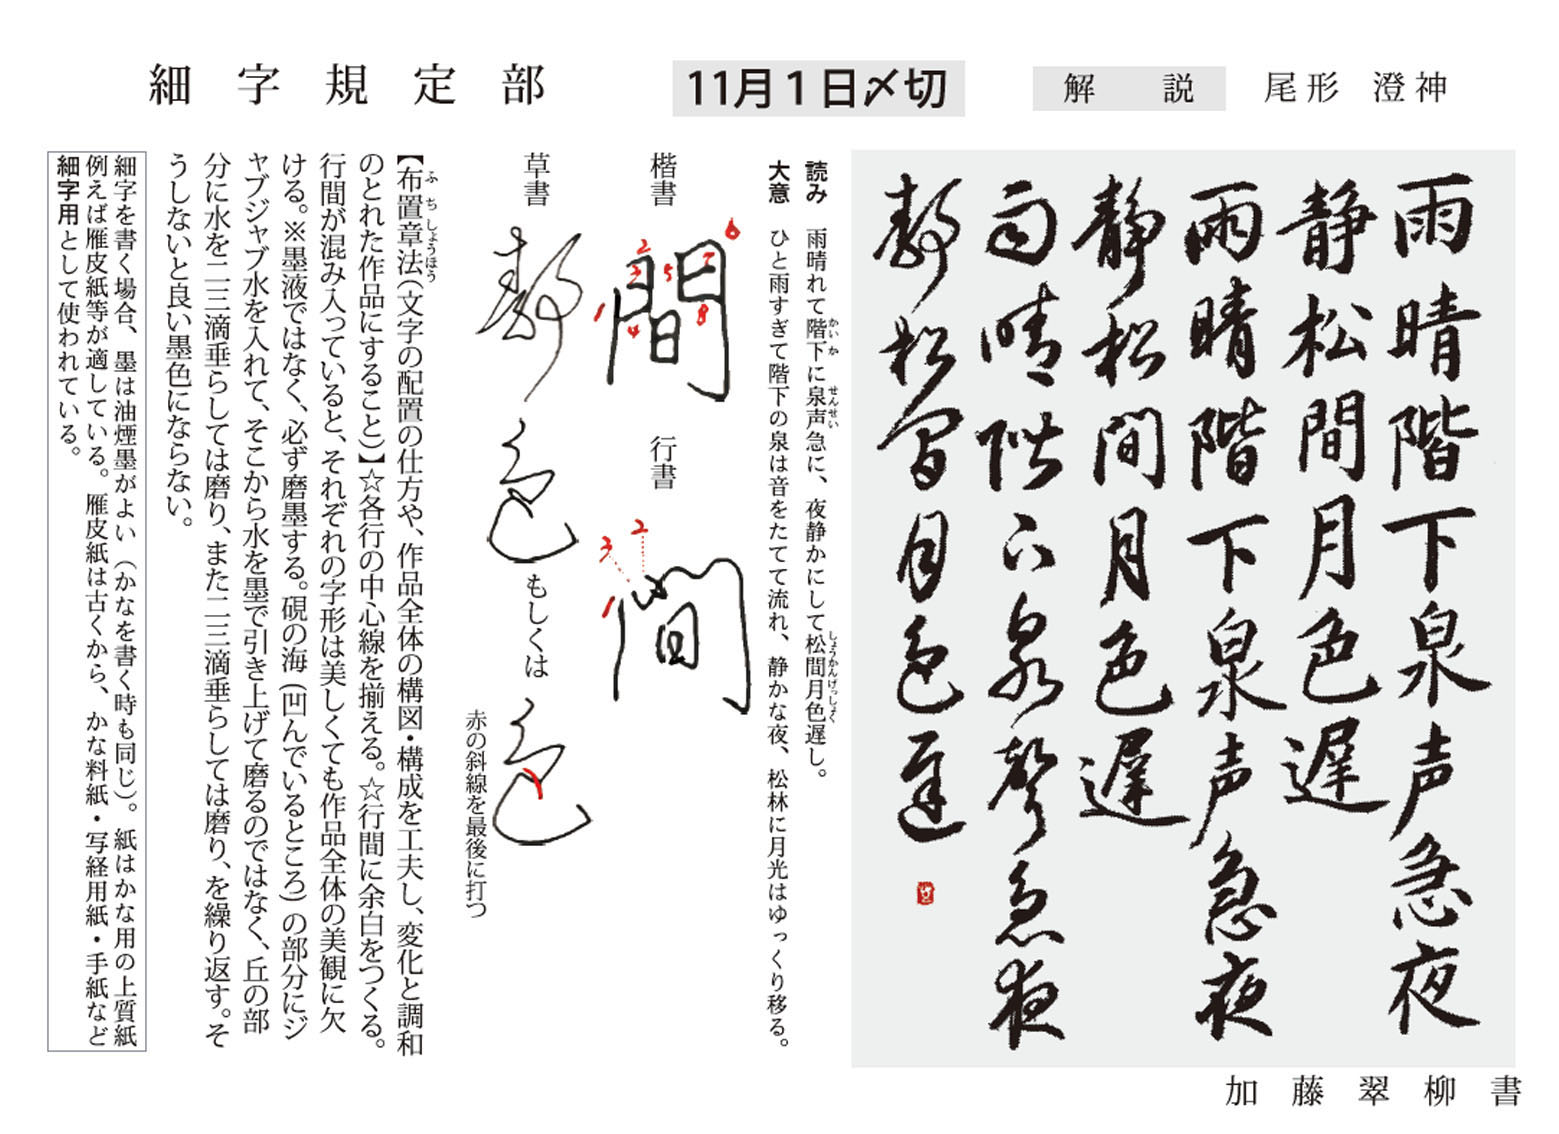 細字規定部
11月1日〆切
解説 尾形 澄神
雨晴階下泉声急夜
静松間月色遅
雨晴階下泉声急夜
静松間月色遅
雨晴階下泉聲急夜
静松間月色遅
加藤翠柳書
読み 雨晴れて階下に泉声急に、夜静かにして松間月色遅し。
かいか せんせい しょうかんげっしょく
大意 ひと雨すぎて階下の泉は音をたてて流れ、静かな夜、松林に月光はゆっくり移る。
楷書
間
1 2 3 4 5 6 7 8
行書
間
1 2 3
草書
静
色
もしくは
色
赤の斜線を最後に打つ
ふちしょうほう
【布置章法(文字の配置の仕方や、作品全体の構図・構成を工夫し、変化と調和
のとれた作品にすること)】☆各行の中心線を揃える。☆行間に余白をつくる。
行間が混み入っていると、それぞれの字形は美しくても作品全体の美観に欠
ける。※墨液ではなく、必ず磨墨する。硯の海(凹んでいるところ)の部分にジ
ャブジャブ水を入れて、そこから水を墨で引き上げて磨るのではなく、丘の部
分に水を二三滴垂らしては磨り、また二三滴垂らしては磨り、を繰り返す。そ
うしないと良い墨色にならない。
細字を書く場合、墨は油煙墨がよい(かなを書く時も同じ)。紙はかな用の上質紙
例えば雁皮紙等が適している。雁皮紙は古くから、かな料紙・写経用紙・手紙など
細字用として使われている。